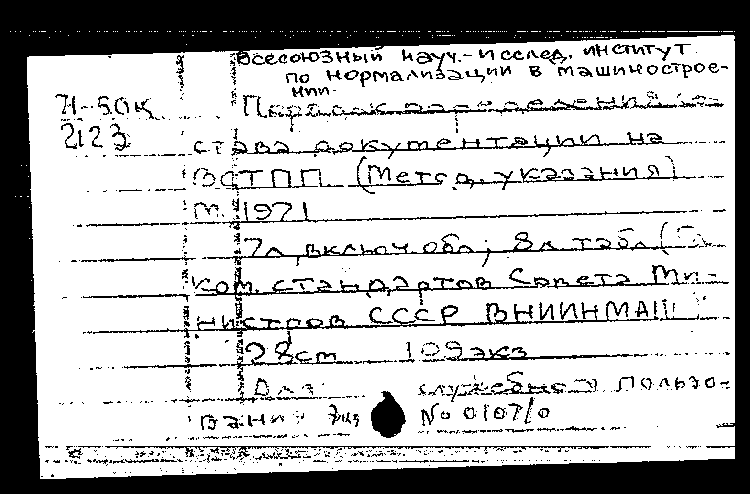 Всесоюзный науч.-исслед. институт
по нормализации в машинострое-
нии.
71-50к
Порядок определения со-
2123
става документации на
ВСТПП. (Метод. указания)
М. 1971
7л, включ. обл; 8л табл (Г.
Ком. стандартов Совета Ми-
нистров СССР ВНИИНМАШ
28cm 109экз
Для служебного пользо-
вания Экз No 0107/0